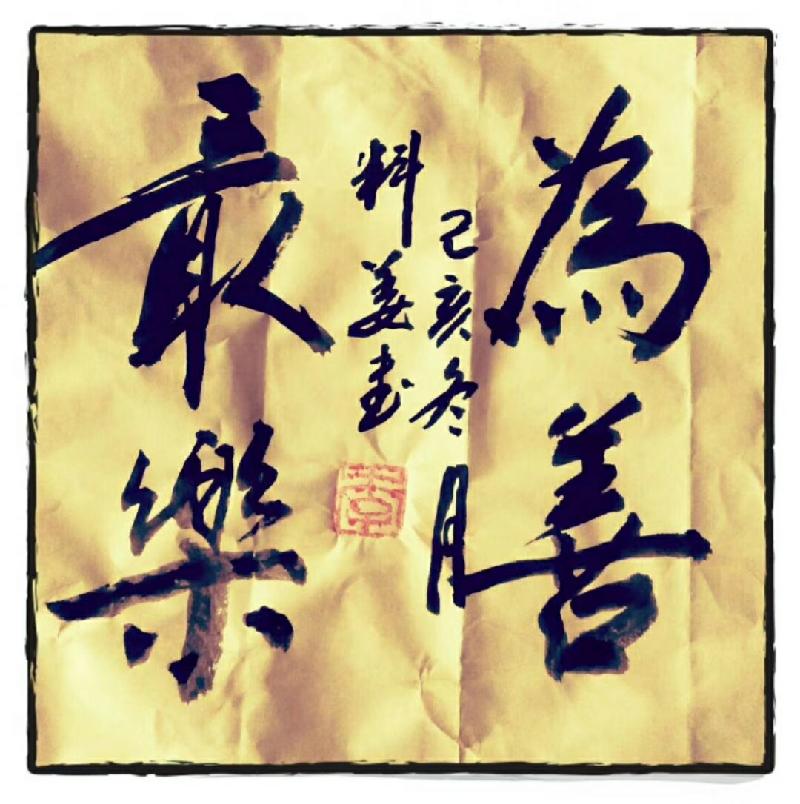 為善
最樂
己亥冬月
料姜書